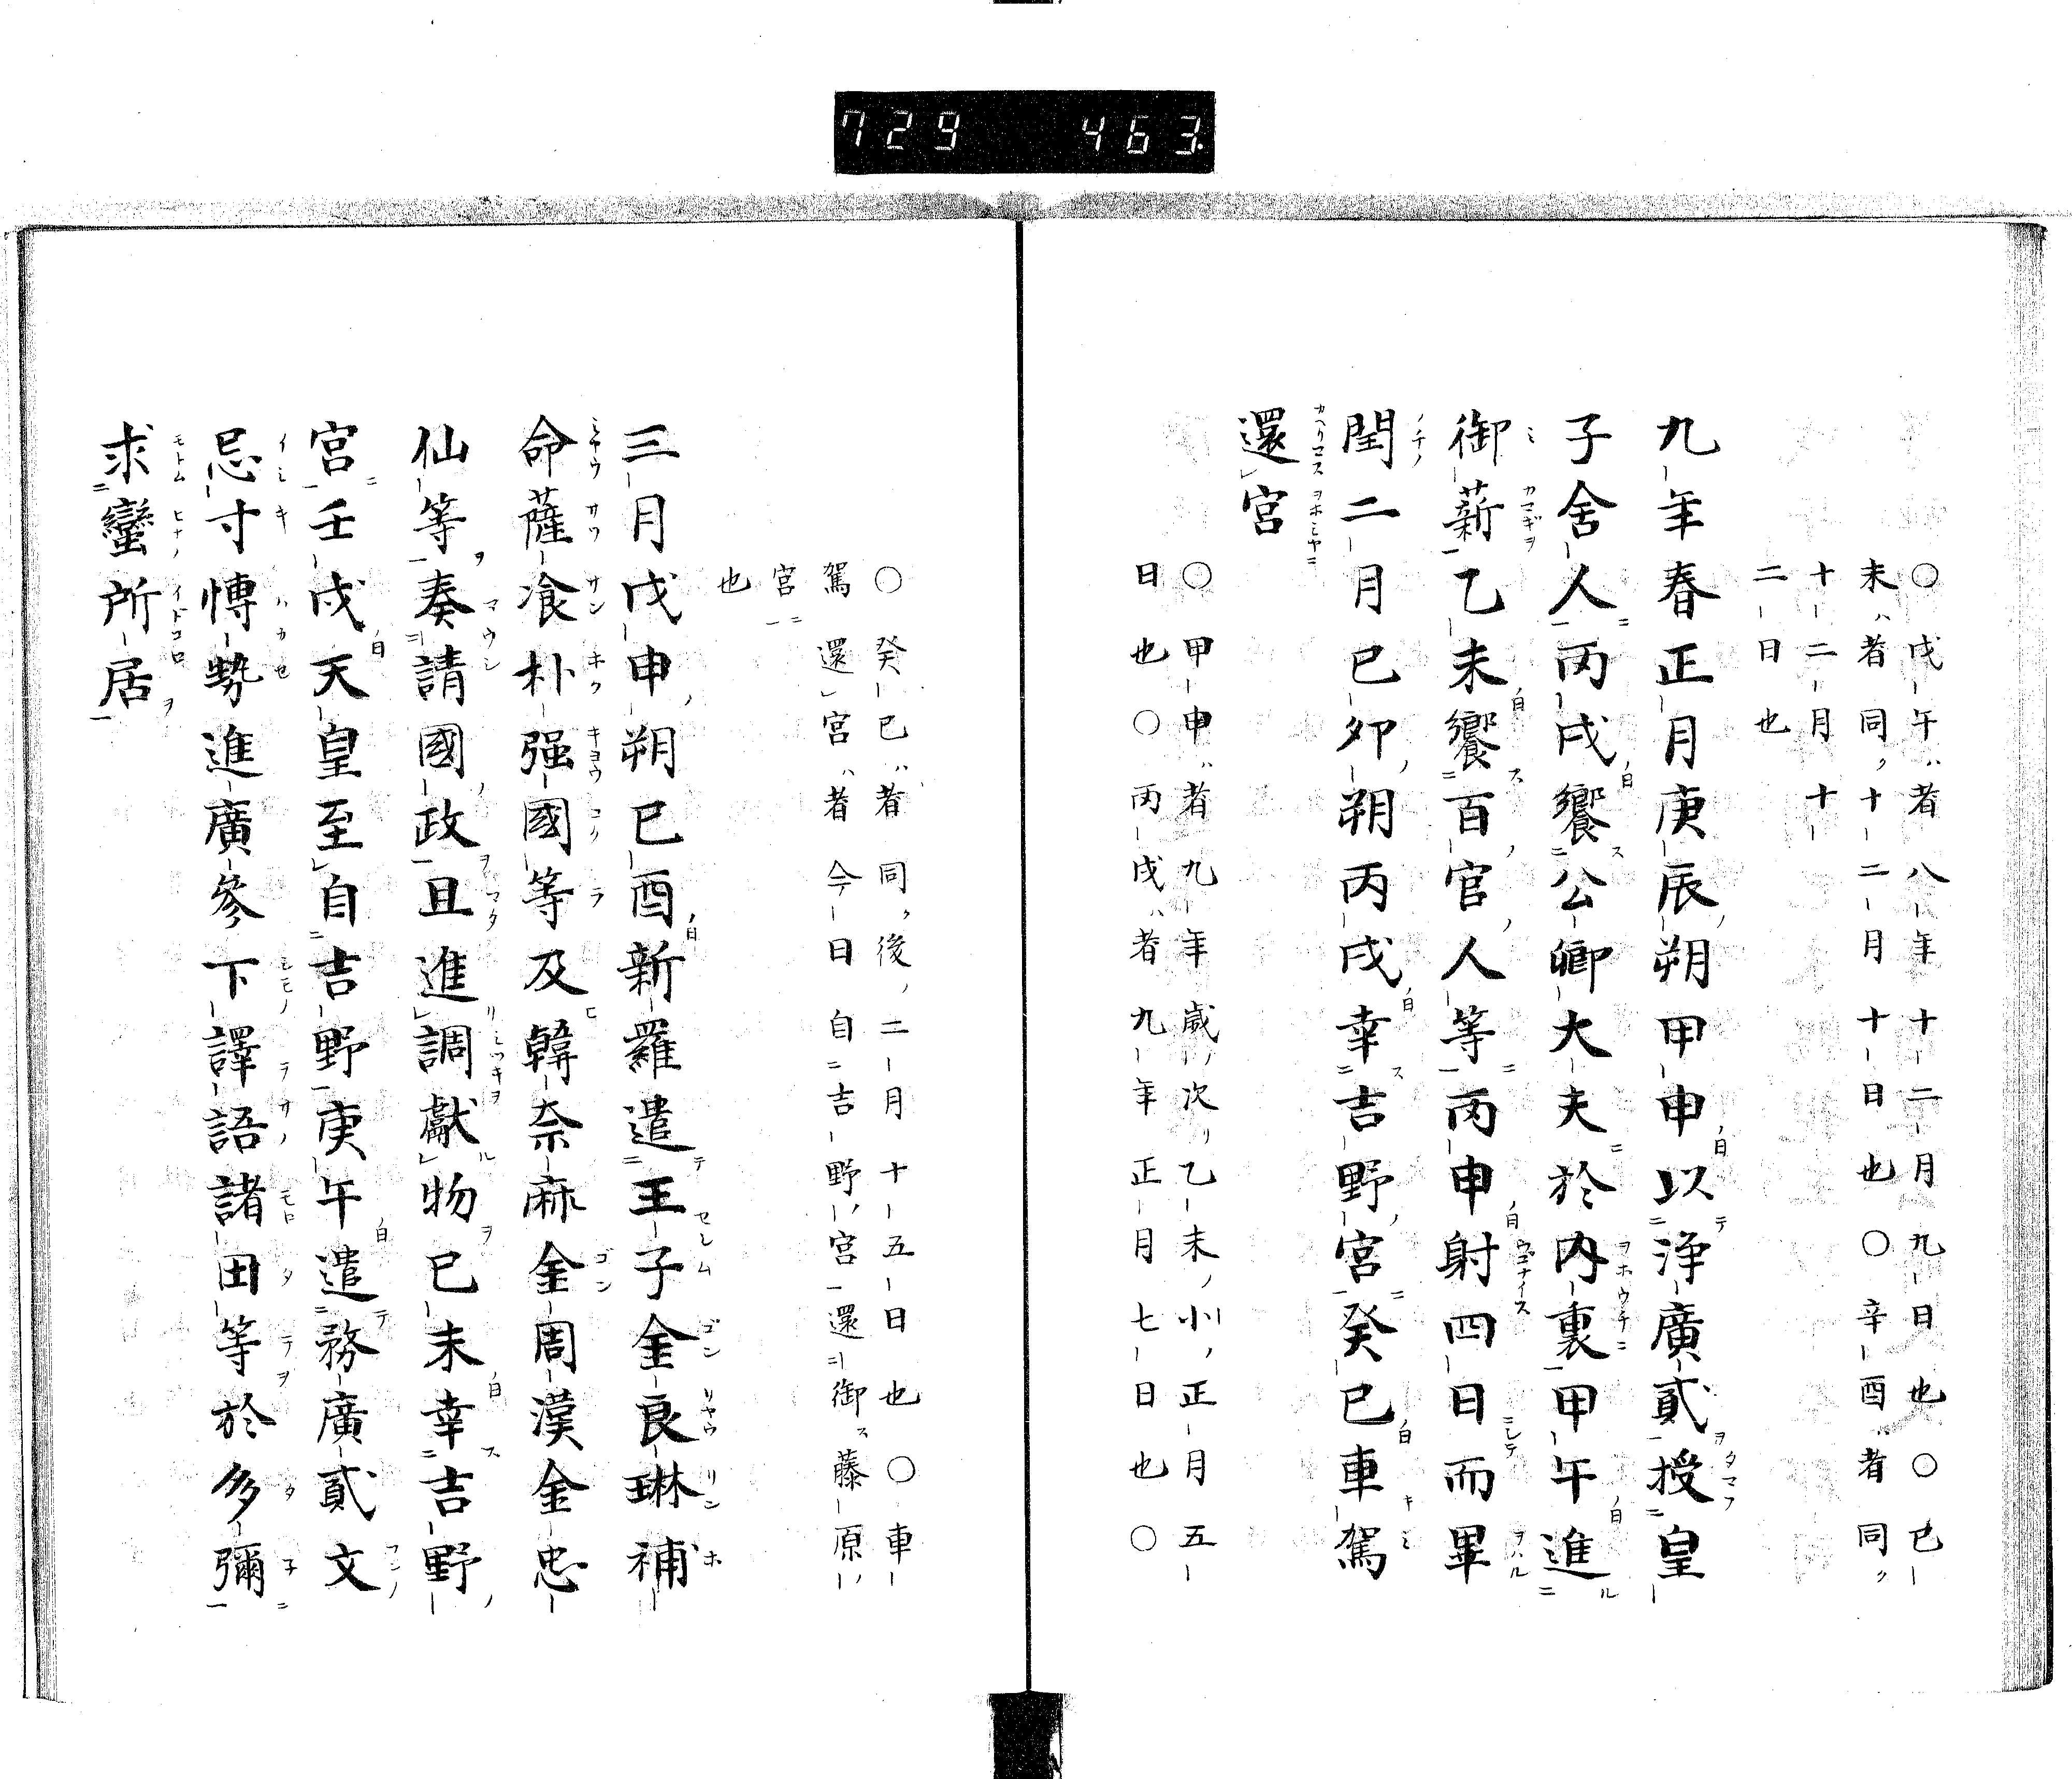 729 463.
〇戊午者八年十二月九日也〇己
未者同十二月十日也〇辛酉者同
十二月十
二日也
九年春正月庚辰朔甲申以浄廣貳授皇
子舍人丙戌饗公卿大夫於内裏甲午進
御薪乙未饗百官人等丙申射四日而畢
閏二月已卯朔丙戌幸吉野宮癸巳車駕
還宮
〇甲申者九年歳次乙未小正月五
日也〇丙戌者九年正月七日也〇
〇癸巳者同後二月十五日也〇車
駕還宮者今日自吉野宮還御藤原
宮
也
三月戊申朔己酉新羅遣王子金良琳補
命薩飡朴强國等及韓奈麻金周漢金忠
仙等奏請國政且進調獻物己未幸吉野
宮壬戌天皇至自吉野庚午遣務廣貳文
忌寸博勢進廣參下譯語諸田等於多彌
求蠻所居